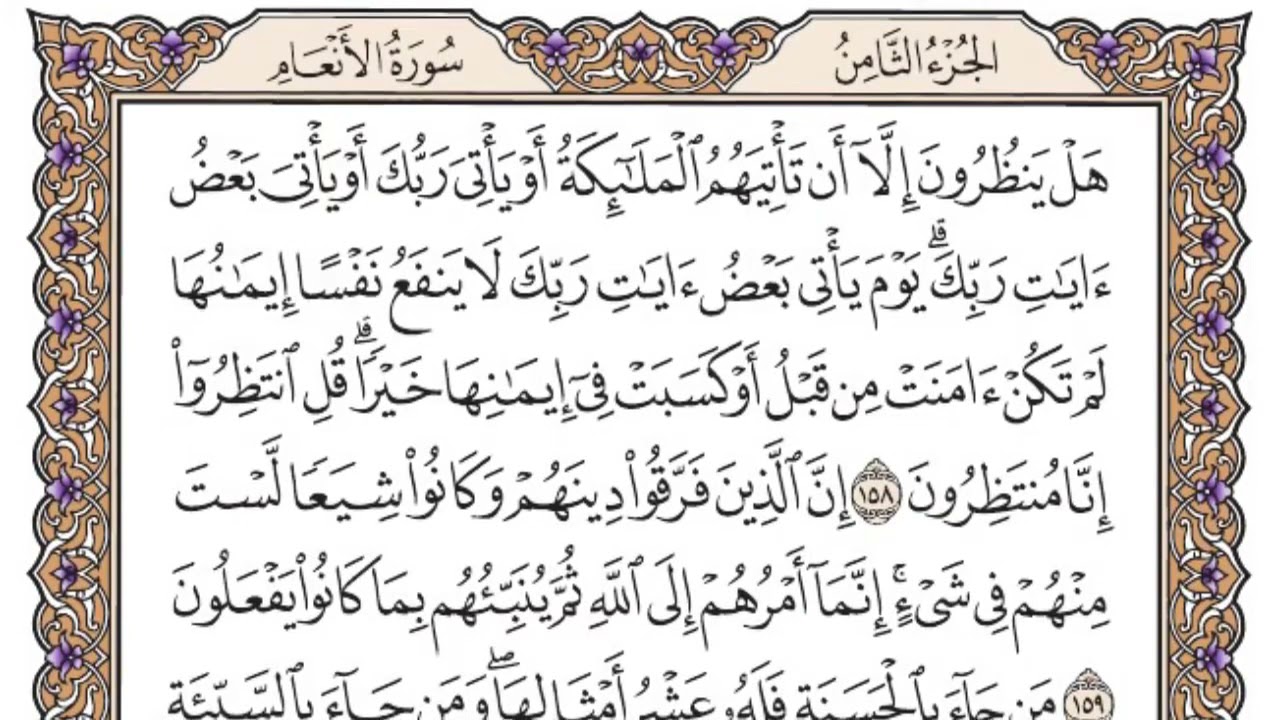 الجُزْءُ الثَّامِنُ
سُورَةُ الأَنْعَامِ
هَلْ يَنظُرُونَ إِلَّآ أَن تَأْتِيَهُمُ ٱلْمَلَـٰٓئِكَةُ أَوْ يَأْتِىَ رَبُّكَ أَوْ يَأْتِىَ بَعْضُ
ءَايَـٰتِ رَبِّكَ ۗ يَوْمَ يَأْتِى بَعْضُ ءَايَـٰتِ رَبِّكَ لَا يَنفَعُ نَفْسًا إِيمَـٰنُهَا
لَمْ تَكُنْ ءَامَنَتْ مِن قَبْلُ أَوْ كَسَبَتْ فِىٓ إِيمَـٰنِهَا خَيْرًا ۗ قُلِ ٱنتَظِرُوٓا۟
إِنَّا مُنتَظِرُونَ ١٥٨ إِنَّ ٱلَّذِينَ فَرَّقُوا۟ دِينَهُمْ وَكَانُوا۟ شِيَعًا لَّسْتَ
مِنْهُمْ فِى شَىْءٍ ۚ إِنَّمَآ أَمْرُهُمْ إِلَى ٱللَّهِ ثُمَّ يُنَبِّئُهُم بِمَا كَانُوا۟ يَفْعَلُونَ
١٥٩ مَن جَآءَ بِٱلْحَسَنَةِ فَلَهُۥ عَشْرُ أَمْثَالِهَا ۖ وَمَن جَآءَ بِٱلسَّيِّئَةِ